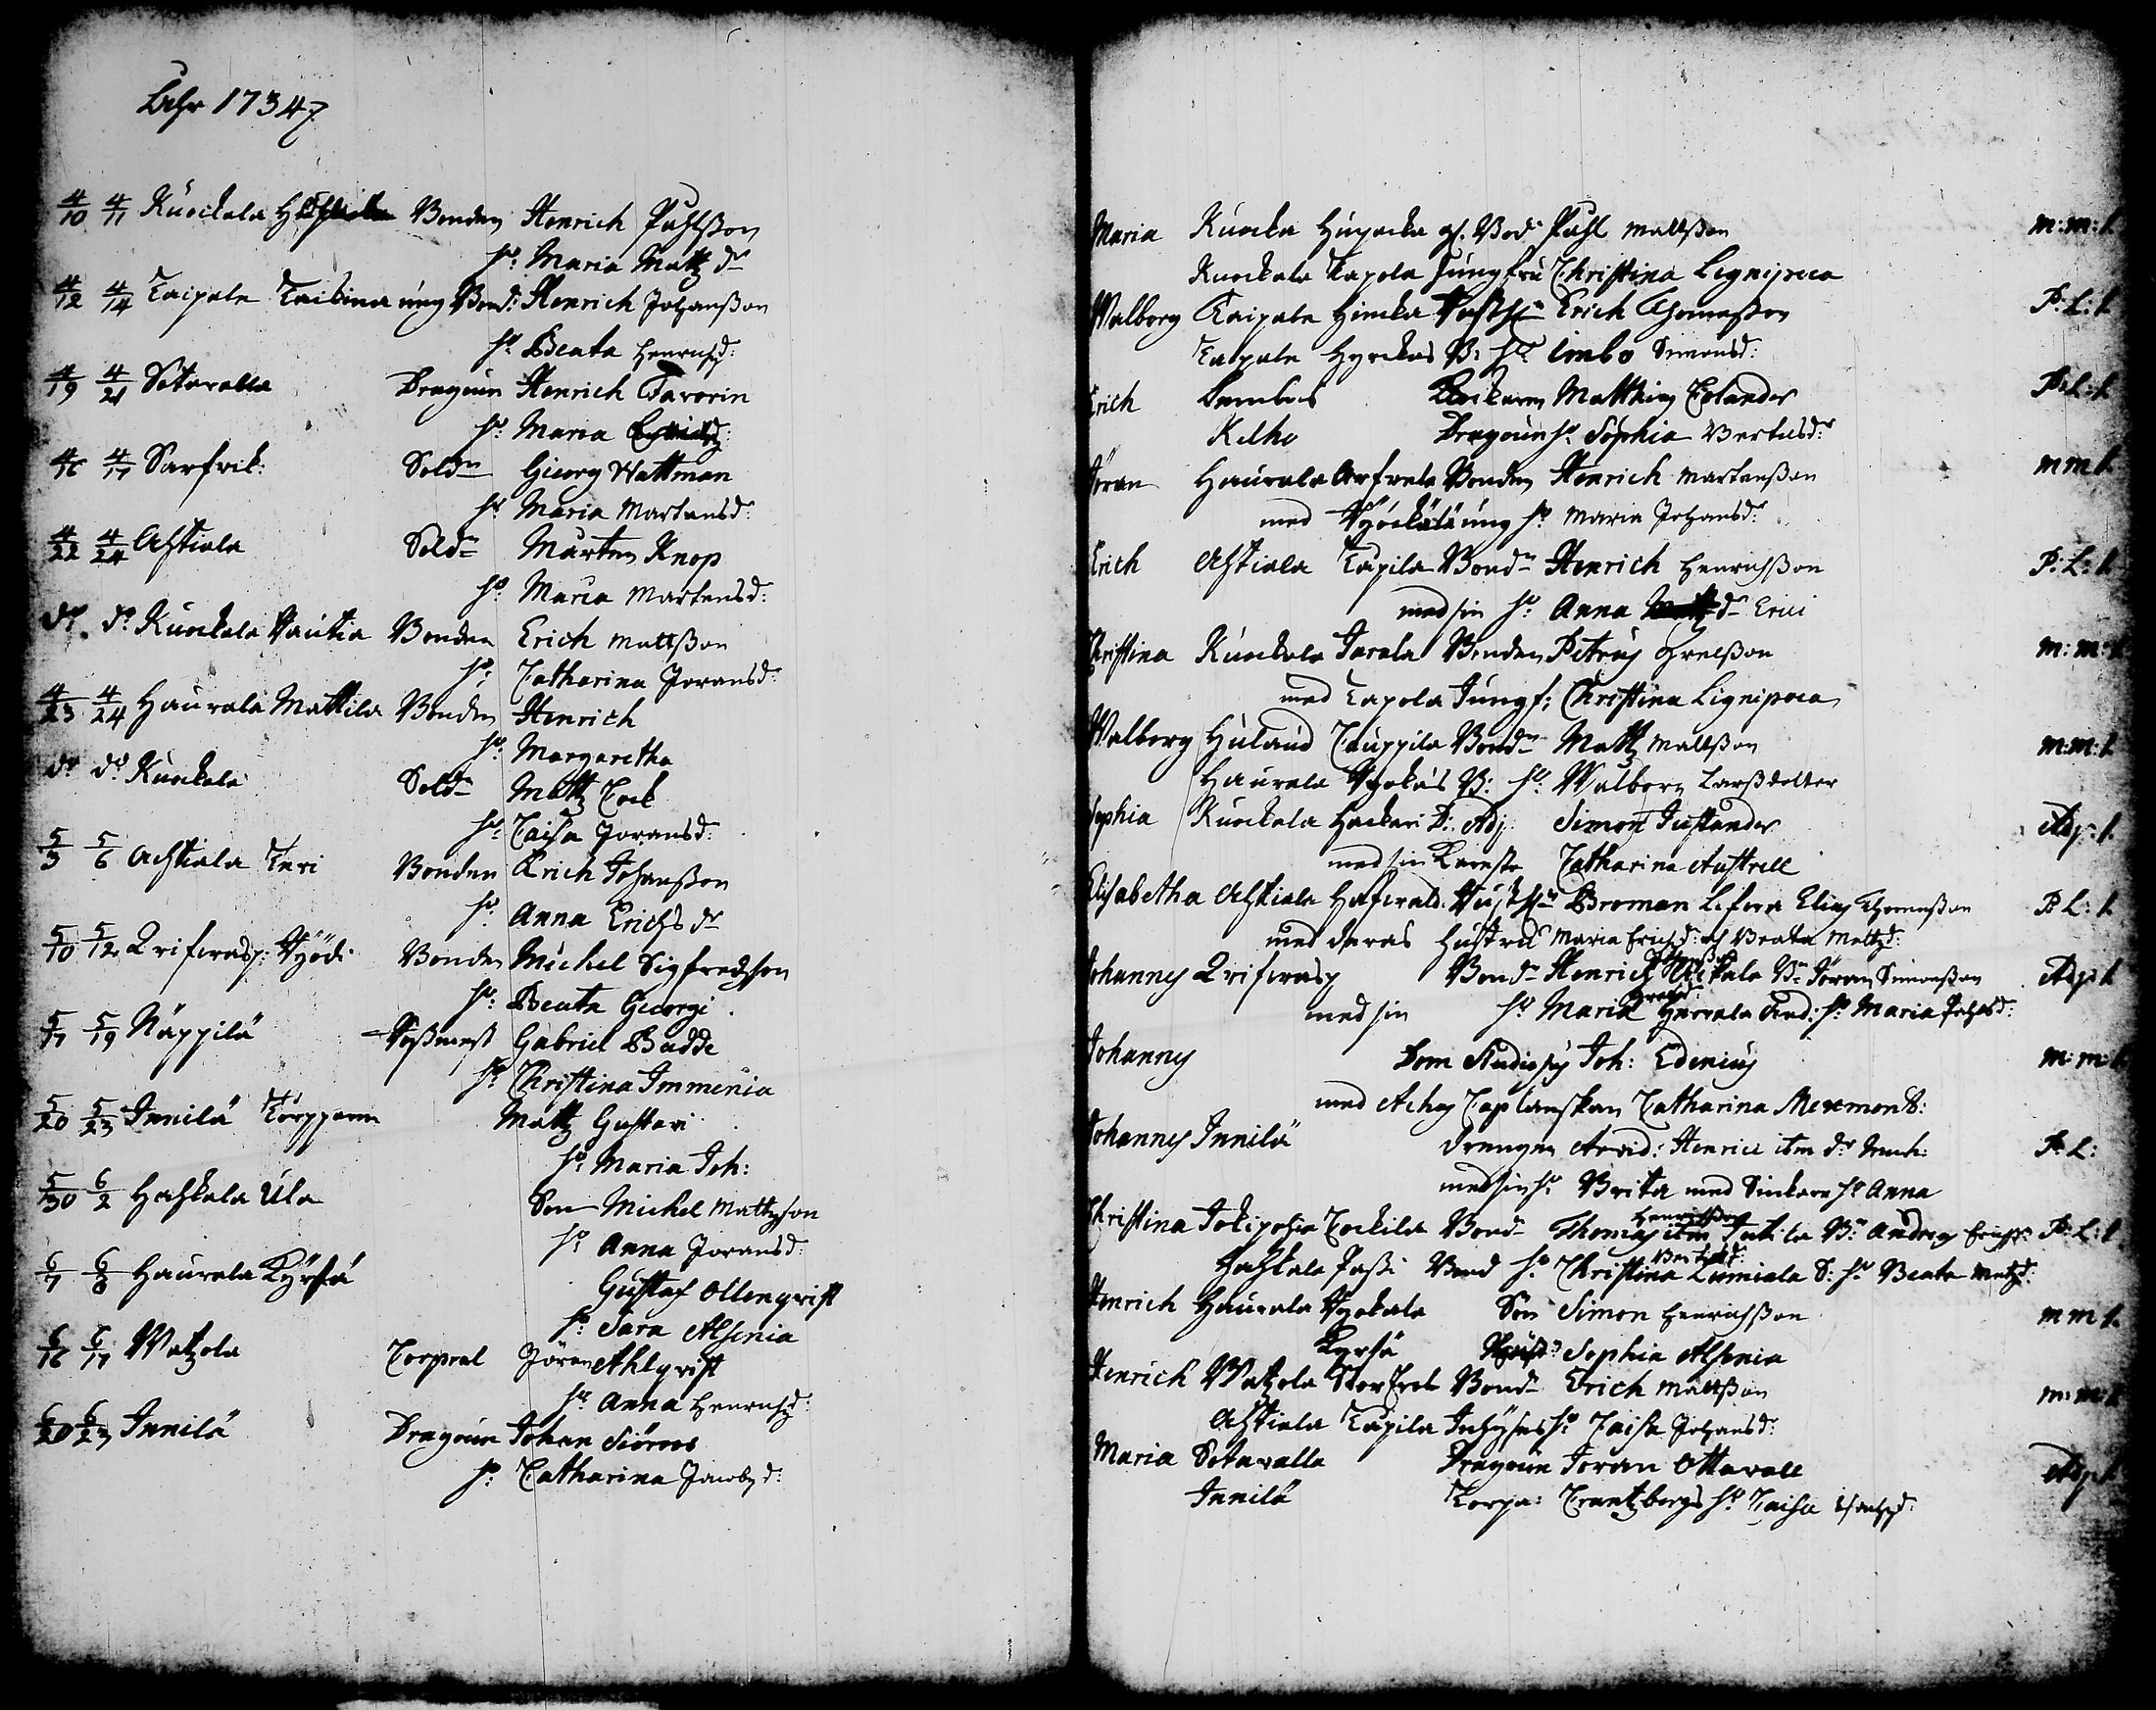 Åhr 1734
4/10 4/11 Kuockala Bonden Henrich Påhlsson
h: Maria Matz dr
4/12 4/14 Taipale Taikina ung Bond: Henrich Johansson
h: Beata Henrichsd:
4/19 4/21 Sotavalla Dragoun Henrich Favorin
h: Maria
4/16 4/17 Sarfvik: Soldn Georg Wattman
h: Maria Martensd:
4/22 4/24 Ahtiala Soldn Mårten Knop
h: Maria Martensd:
do do Kuockala Vautia Bonden Erich Mattsson
h: Catharina Joransd:
4/23 4/24 Haurala Mattila Bonden Henrich
h: Margaretha
do do Kuockala Soldn Mattz Cock
h: Caisa Joransd:
5/3 5/6 Ahtiala Teri Bonden Erich Johansson
h: Anna Erichs dr
5/10 5/12 Bonden Michel Sigfredzson
h: Beata Georgi
5/17 5/19 Näppilä Gabriel Budde
h: Christina Immenia
5/20 5/23 Innilä Torpparen Mattz Gustavi
h: Maria Joh:
5/30 6/2 Hahkala Ula Son Michel Mattzson
h: Anna Joransd:
6/7 6/8 Haurala Kyrfä Gustaf Ollenqvist
h: Sara Alfenia
6/16 6/17 Watzola Corpral Jöran Ahlqvist
h: Anna Henrichsd:
6/20 6/23 Innilä Dragoun Johan Siöroos
h: Catharina Jacobsd:
Maria Kuocka Huipocka gl. Bond: Påhl Mattsson m:m:l.
Kuockala Tapola Jungfru Christina Lignipæa
Walborg Taipale Hincka Erich Thomasson P:L:l.
Taipale Hyrckas B: h: Simonsd:
Erich Lembois Klockaren Matthias Polander P:L:l.
Kelho Dragoun h: Sophia Bertilsd:
Jöran Haurala Arfvela Bonden Henrich Martensson m m l.
med ung h: Maria Johansd:
Erich Ahtiala Tapila Bondn Henrich Henrichsson P:L:l.
med sin h: Anna dr Erici
Christina Kuockala Jarala Bonden Petrus Grelsson m:m:l
med Tapola Jungf: Christina Lignipæa
Walborg Huland Cauppila Bondn Mattz Mattsson m:m:l
Haurala Vyokas B: h: Walborg Larssdotter
Sophia Kuockala Hackari D: Adj. Simon Justander Adj:l.
med sin Kæreste Catharina Austrell
Elisabetha Ahtiala Broman Elias Thomasson P L:l.
med deras hustrur Maria Erichsd: och Beata Mattzd:
Johannes Bondn Henrich Bn Jöran Simonsson Adj l
med sin h: Maria h: Maria Johansd:
Johannes Dom Studiosus Joh: Edenius m:m:l
med Achas Caplanskan Catharina Mexmont:
Johannes Innilä Drengen Arvid: Henrici item P:L:
med sin h: Brita med h: Anna
Christina Jokipohia Cockila Bondn Thomas Henrichsson item Jutila Bn Andreas Erichss: P:L:l
Hahkala Passi Bond h: Christina Bertilsd: Lumiala S: h: Beata Mattzd:
Henrich Haurala Vyokala Son Simon Henrichsson m m l.
Kyrfä Sophia Alfenia
Henrich Watzola Bondn Erich Mattsson m:m:l
Ahtiala Tapila Inhyses h: Caisa Johansd:
Maria Sotavalla Dragoun Joran Ottavall Adj:l
Innilä Corpr: Crantzbergs h: Caisa